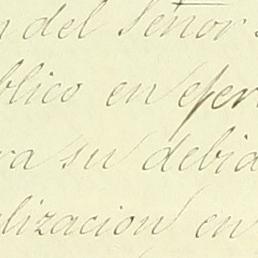 n del Señor
blico en ejer
ra su debid
lizacion en